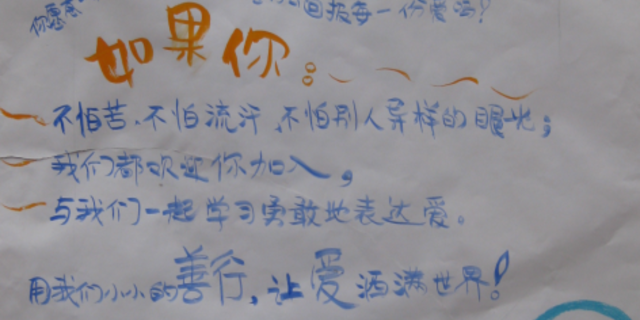 你愿意 回报每一份爱吗？
如果你：
不怕苦、不怕流汗、不怕别人异样的眼光；
我们都欢迎你加入，
与我们一起学习勇敢地表达爱。
用我们小小的善行，让爱洒满世界！